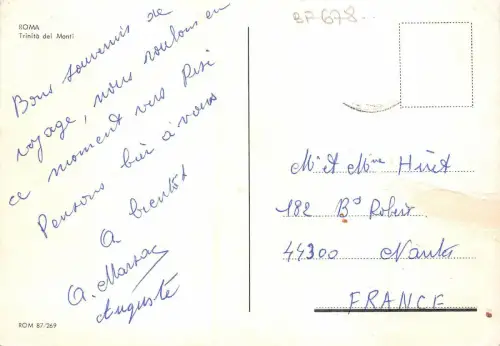 ROMA
Trinità dei Monti
Bons souvenirs de
voyage, nous roulons en
ce moment vers Pise
Pensons bien à vous
A bientôt
A. Marsac
Auguste
ROM 87/269
BF678
Mr et Mme Huet
182 Bd Robert
44300 Nantes
FRANCE